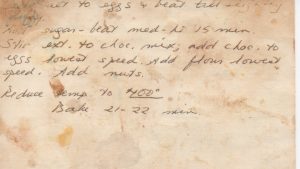 to eggs & beat till
Add sugar - beat med-hi 15 min
Stir ext. to choc. mix, add choc. to
eggs lowest speed. Add flour lowest
speed. Add nuts.
Reduce temp to "400"
Bake 21-22 min